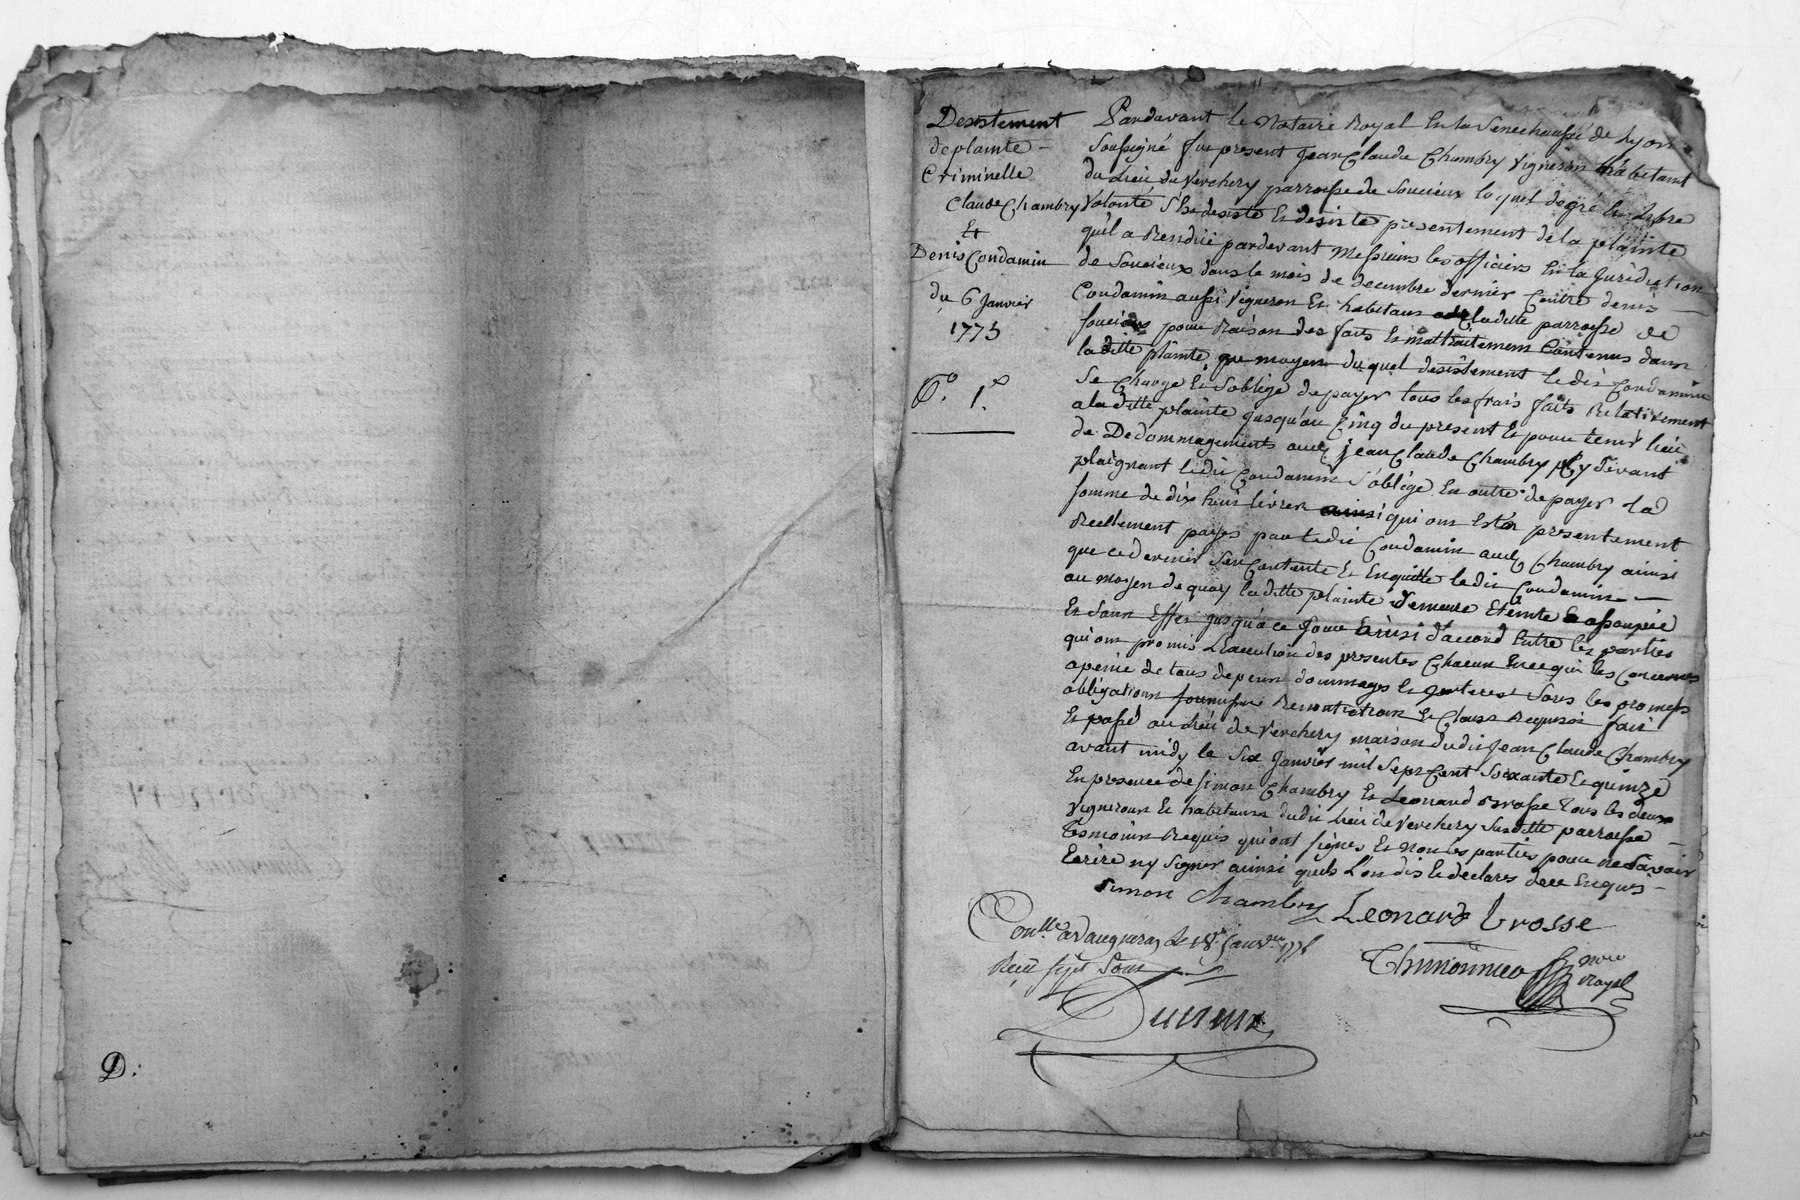 Desistement
de plainte -
Criminelle
Claude Chambry
Et
Denis Condamin
du 6 Janvier
1775
Pardevant le Notaire Royal En la Senechaussé de Lyon
Soussigné fut present Jean Claude Chambry Vigneron Habitant
du Lieu du Verchery parroisse de Soucieux lequel de gré En Libre
Volonté S'he desiste Et desiste presentement de la plainte
quil a Rendüe pardevant Messieurs les officiers En la Jurisdiction
de Soucieux dans le mois de decembre dernier Contre denis
Condamin aussi Vigneron Et habitans de Ladite parroisse de
Soucieux pour Raison des faits Et maltraitement Contenus dans
la ditte plainte, au moyen du quel desistement ledit Condamin
Se Charge Et S'oblige de payer tous les frais faits Relativement
a la ditte plainte Jusqu'au Cinq du present Et pour tenir lieu
de Dedommagements aud Jean Claude Chambry Cy devant
plaignant ledit Condamin S'oblige En outre de payer La
somme de dix huit livres qui ont Esté presentement
Reellement payés par ledit Condamin aud Chambry ainsi
que ce dernier S'en Contente Et En quitte ledit Condamin
au moyen de quoy la ditte plainte demeure Eteinte Et assoupie
Et Sans Effet Jusqu'a ce Jour Et ainsi d'accord Entre les parties
qui ont promis L'Execution des presentes Chacun En ce qui les Concernes
apeine de tous depens dommages Et Interest Sous les promess
obligations Soumission Renontiation Et Clause Requises fait
Et passé au Lieu de Verchery maison dudit Jean Claude Chambry
avant midy le Six Janvier mil Sept Cent Soixante Et quinze
En presence de Simon Chambry Et Leonard Brosse Tous les deux
Vignerons Et habitans dudit Lieu de Verchery Susditte parroisse
Tesmoins Requis qui ont signes Et Non les parties pour ne Savoir
Ecrire ny Signer ainsi quils L'on dis Et declares de ce Enquis
Simon Chambry Leonard Brosse
Con.lle a Vaugneray Le 18e Janv.er 1775
Reçu Sept Sous
Royal
D.